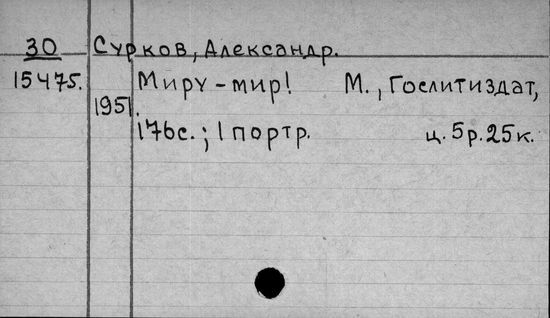 30 Сурков, Александр.
15475. Миру - мир! М., Гослитиздат,
1951.
176с.; 1 портр. ц. 5р. 25к.